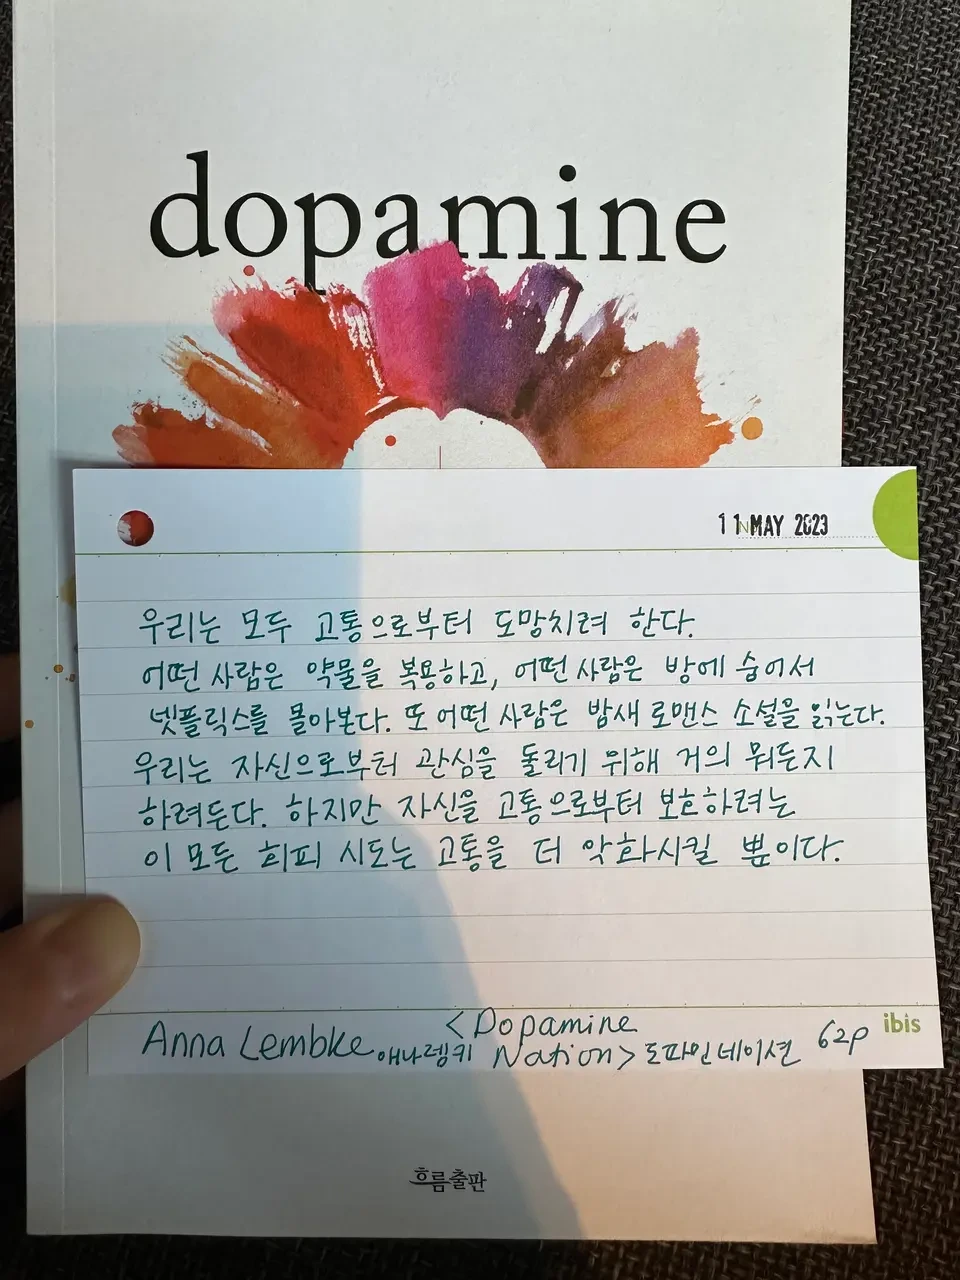 dopamine
11 MAY 2023
우리는 모두 고통으로부터 도망치려 한다.
어떤 사람은 약물을 복용하고, 어떤 사람은 방에 숨어서
넷플릭스를 몰아본다. 또 어떤 사람은 밤새 로맨스 소설을 읽는다.
우리는 자신으로부터 관심을 돌리기 위해 거의 뭐든지
하려든다. 하지만 자신을 고통으로부터 보호하려는
이 모든 회피 시도는 고통을 더 악화시킬 뿐이다.
Anna Lembke 애나렘키 <Dopamine
Nation> 도파민네이션 62p
ibis
흐름출판